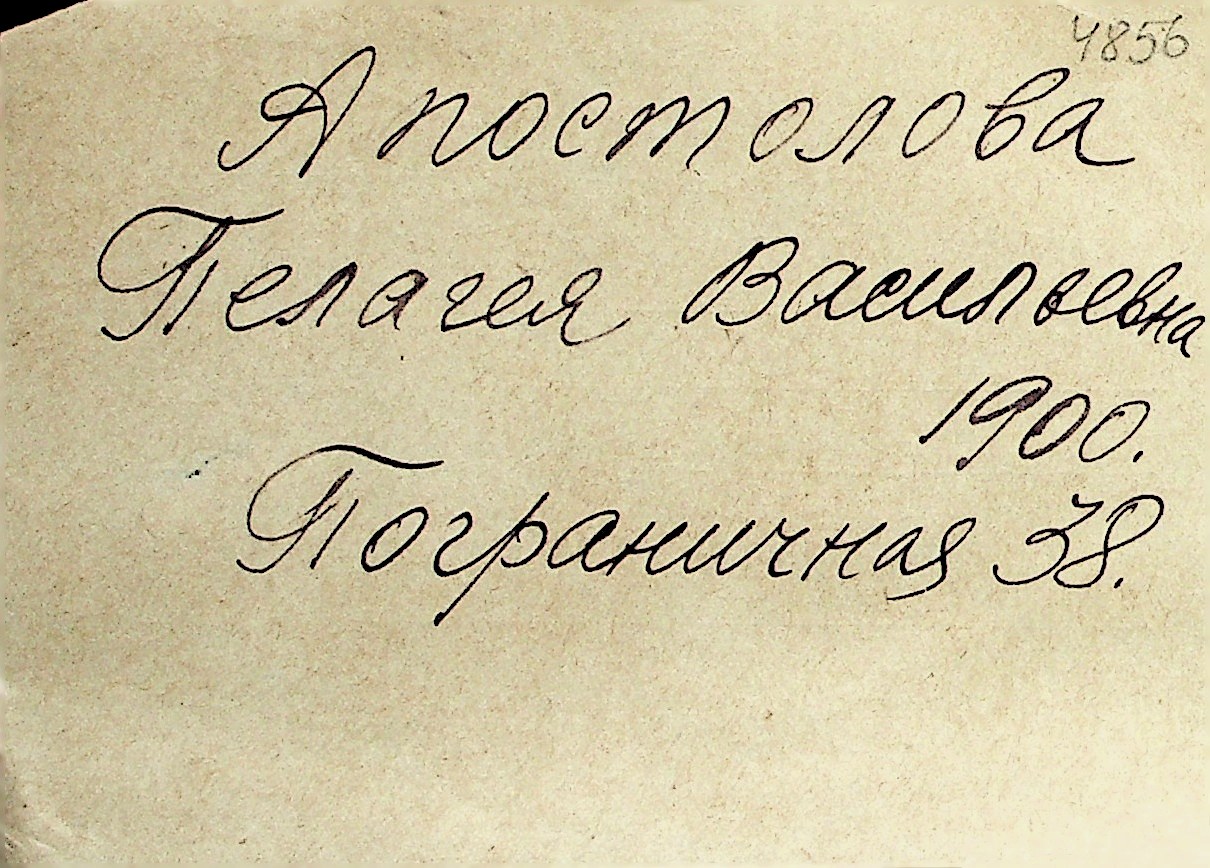 4856
Апостолова
Пелагея Васильевна
1900.
Пограничная 38.